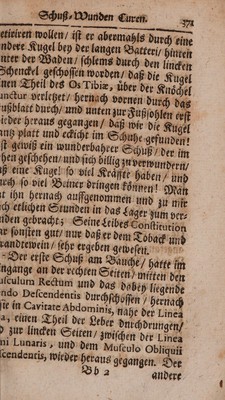 Schuß-Wunden Curen. 371
etiriren wollen/ ist er abermahls durch eine
ndere Kugel bey der langen Batteri/ hinten
nter der Waden/ schlems durch den lincken
Schenckel geschossen worden/ daß die Kugel
inen Theil des Os Tibiæ, über der Knöchel
unctur verletzet/ hernach vornen durch das
ußblatt durch/ und unten zur Fußsohlen erst
ider heraus gegangen/ daß wir die Kugel
anz platt und eckicht im Schuhe gefunden!
st gewiß ein wunderbahrer Schuß/ der im
hen geschehen/ und sich billig zu verwundern/
ß eine Kugel! so viel Kräffte haben/ und
urch so viel Beiner dringen können! Man
t ihn hernach auffgenommen und zu mir
ch etlichen Stunden in das Lager zum ver-
nden gebracht; Seine Leibes Constitution
ar sonsten gut/ nur daß er dem Toback und
randtewein/ sehr ergeben gewesen.
Der erste Schuß am Bauche/ hatte im
ingange an der rechten Seiten/ mitten den
usculum Rectum und das dabey liegende
endo Descendentis durchschossen/ hernach
ste in Cavitate Abdominis, nahe der Linea
a, einen Theil der Leber durchdrungen/
d zur lincken Seiten/ zwischen der Linea
mi Lunaris, und dem Musculo Obliquii
scendentis, wieder heraus gegangen. Der
Bb 2 andere